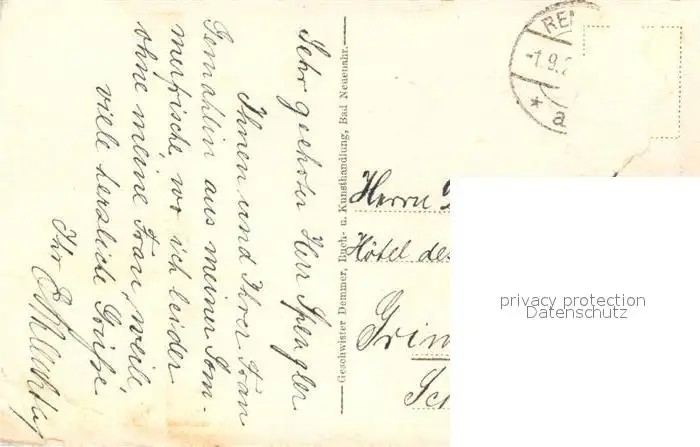 Sehr geehrter Herr Spengler
Ihnen und Ihrer Frau
Gemahlin aus meiner Som-
merfrische, wo ich leider
ohne meine Frau, weile,
viele herzliche Grüße.
Ihr
Geschwister Demmer, Buch- u. Kunsthandlung, Bad Neuenahr.
-1.9.2
* a
Herrn
Hôtel des
privacy protection
Datenschutz